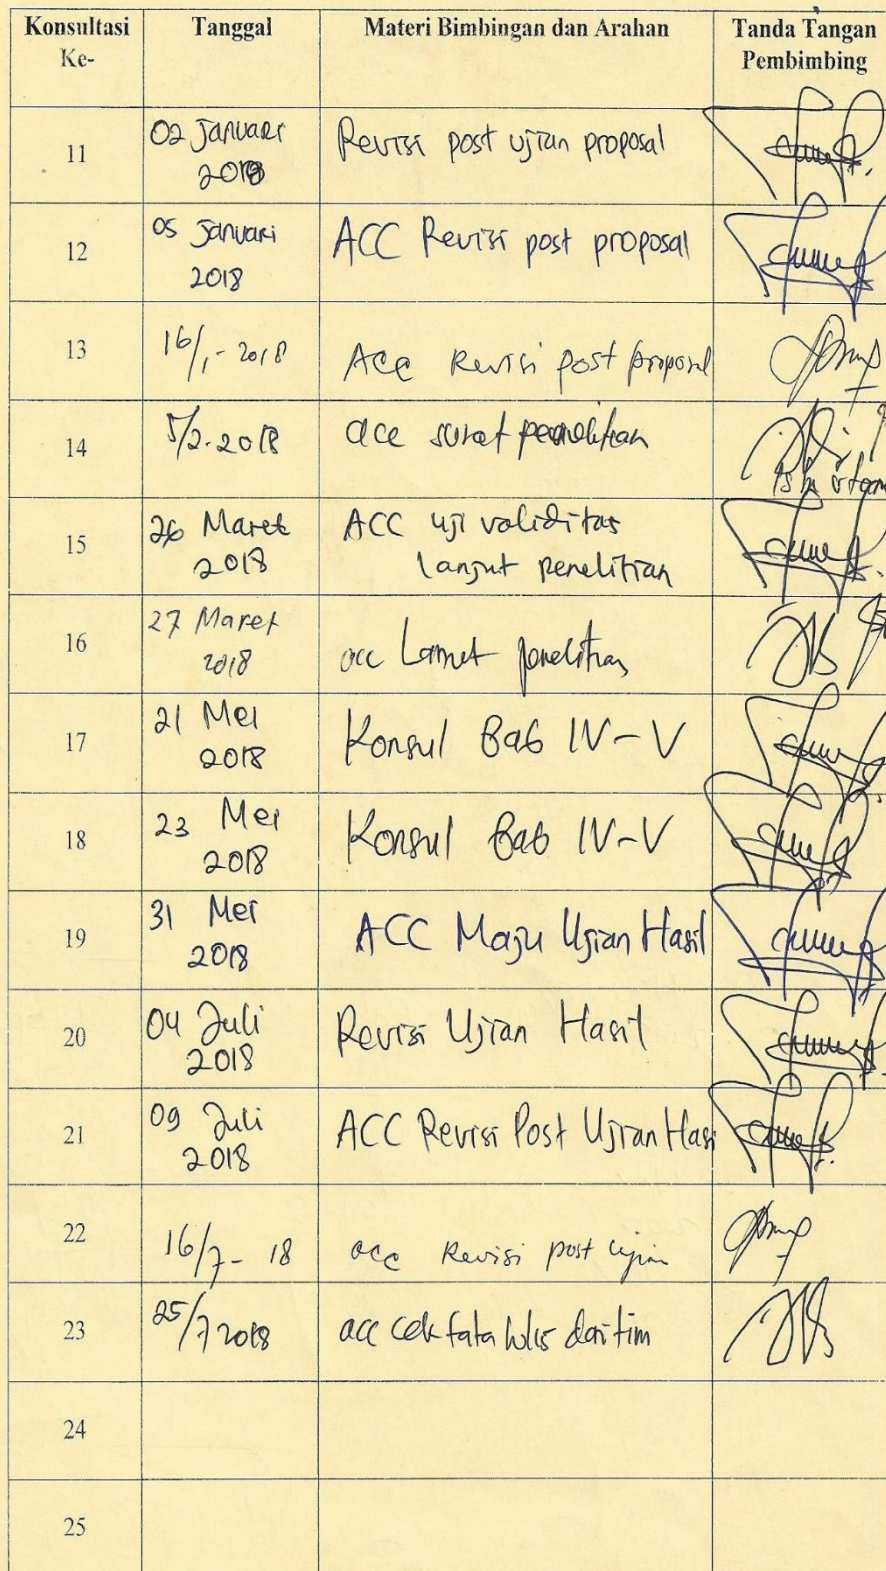 Konsultasi Ke- Tanggal Materi Bimbingan dan Arahan Tanda Tangan Pembimbing
11 02 Januari 2018 Revisi post ujian proposal
12 05 Januari 2018 ACC Revisi post proposal
13 16/1-2018 Acc Revisi post proposal
14 5/2-2018 acc surat penelitian
15 26 Maret 2018 ACC uji validitas
lanjut penelitian
16 27 Maret 2018 acc Lanjut penelitian
17 21 Mei 2018 Konsul Bab IV-V
18 23 Mei 2018 Konsul Bab IV-V
19 31 Mei 2018 ACC Maju Ujian Hasil
20 04 Juli 2018 Revisi Ujian Hasil
21 09 Juli 2018 ACC Revisi Post Ujian Hasi
22 16/7-18 acc Revisi post ujian
23 25/7 2018 acc cek tata tulis dari tim
24
25